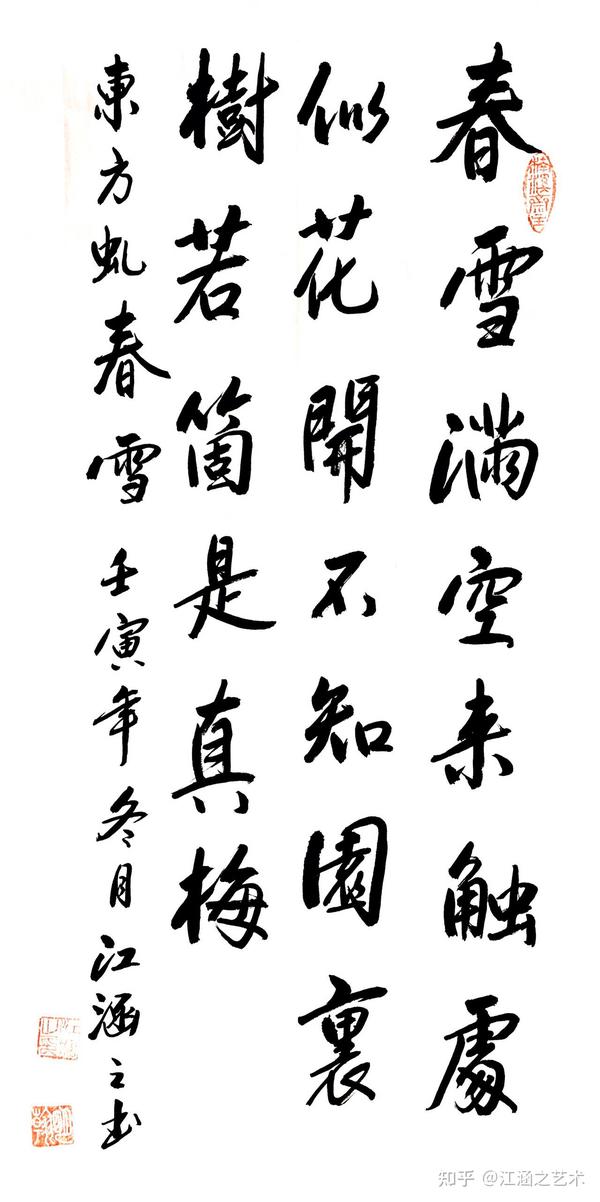 春雪滿空来触處
似花開不知園裏
樹若箇是真梅
東方虬春雪 壬寅年冬月江涵之书
知乎 @江涵之艺术